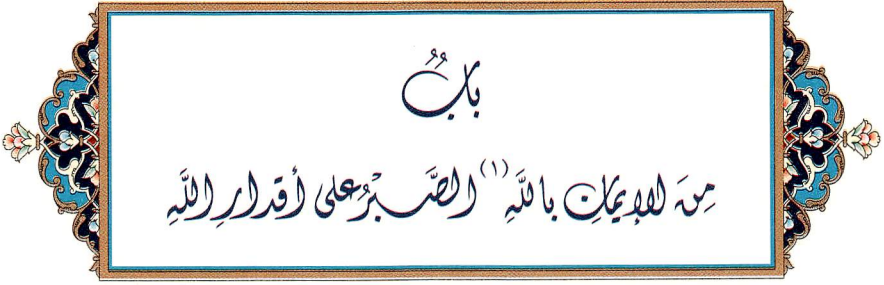 بَابٌ
مِنَ الإِيمَانِ بِاللَّهِ (١) الصَّبْرُ عَلَى أَقْدَارِ اللَّهِ